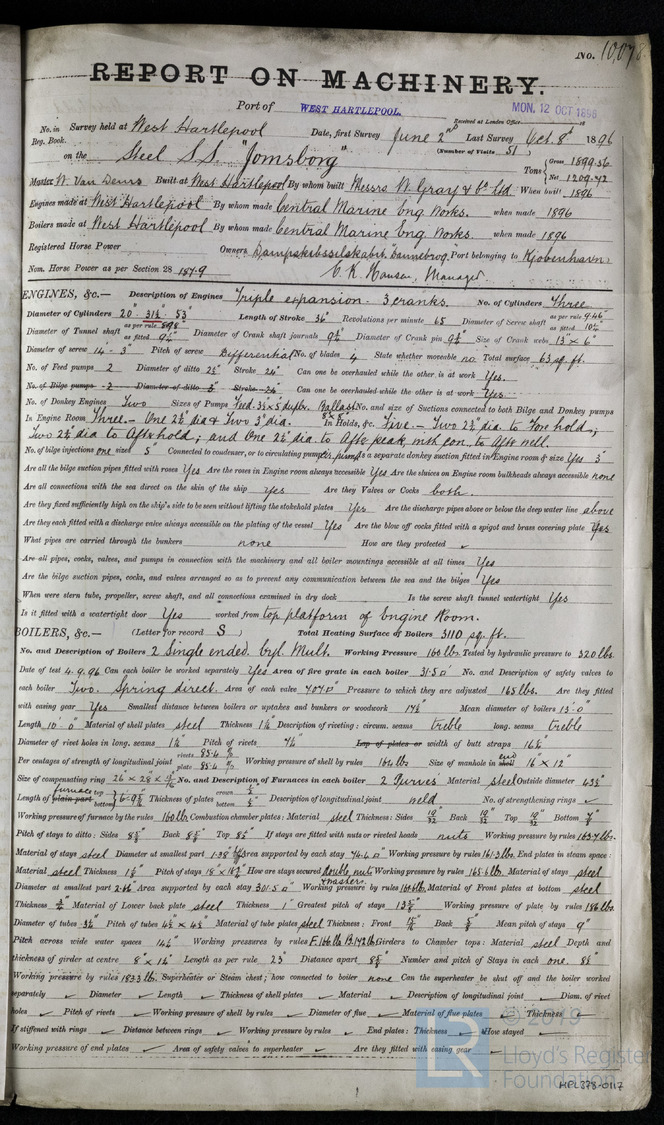 No. 10,078
REPORT ON MACHINERY.
Port of WEST HARTLEPOOL. MON. 12 OCT 1896
Received at London Office 18
No. in Reg. Book. Survey held at West Hartlepool Date, first Survey June 2nd Last Survey Oct. 8th 1896
(Number of Visits 51)
on the Steel S.S. "Jomsborg" Tons Gross 1899.56 Net 1209.72
Master W. Van Deurs Built at West Hartlepool By whom built Messrs W. Gray & Co. Ltd. When built 1896
Engines made at West Hartlepool By whom made Central Marine Eng Works. when made 1896
Boilers made at West Hartlepool By whom made Central Marine Eng. Works. when made 1896
Registered Horse Power Owners Dampskibsselskabet "Dannebrog" Port belonging to Kjobenhavn
Nom. Horse Power as per Section 28 187.9 C. K. Hansen, Manager.
ENGINES, &c.— Description of Engines Triple expansion - 3 cranks. No. of Cylinders Three
Diameter of Cylinders 20 - 31½ - 53" Length of Stroke 36" Revolutions per minute 65 Diameter of Screw shaft as per rule 9.46" as fitted 10¼"
Diameter of Tunnel shaft as per rule 8.98" as fitted 9¼" Diameter of Crank shaft journals 9½" Diameter of Crank pin 9½" Size of Crank webs 13" x 6"
Diameter of screw 14'- 3" Pitch of screw Differential No. of blades 4 State whether moveable no Total surface 63 sq. ft.
No. of Feed pumps 2 Diameter of ditto 2½" Stroke 24" Can one be overhauled while the other is at work Yes.
No. of Bilge pumps 2 Diameter of ditto 3" Stroke 24" Can one be overhauled while the other is at work Yes.
No. of Donkey Engines Two Sizes of Pumps Feed. 3½ x 5" duplex. Ballast No. and size of Suctions connected to both Bilge and Donkey pumps
In Engine Room Three.- One 2½" dia & Two 3" dia. In Holds, &c. Five - Two 2½" dia to Fore hold;
Two 2½" dia to Afterhold; and One 2½" dia. to Afte peak, with con. to Aft well.
No. of bilge injections one sizes 5" Connected to condenser, or to circulating pump Is a separate donkey suction fitted in Engine room & size Yes 3"
Are all the bilge suction pipes fitted with roses Yes Are the roses in Engine room always accessible Yes Are the sluices on Engine room bulkheads always accessible none
Are all connections with the sea direct on the skin of the ship yes Are they Valves or Cocks both.
Are they fixed sufficiently high on the ship's side to be seen without lifting the stokehold plates Yes Are the discharge pipes above or below the deep water line above
Are they each fitted with a discharge valve always accessible on the plating of the vessel Yes Are the blow off cocks fitted with a spigot and brass covering plate Yes
What pipes are carried through the bunkers none How are they protected ✓
Are all pipes, cocks, valves, and pumps in connection with the machinery and all boiler mountings accessible at all times Yes
Are the bilge suction pipes, cocks, and valves arranged so as to prevent any communication between the sea and the bilges Yes
When were stern tube, propeller, screw shaft, and all connections examined in dry dock Is the screw shaft tunnel watertight Yes
Is it fitted with a watertight door Yes worked from top platform of Engine Room.
BOILERS, &c.— (Letter for record S) Total Heating Surface of Boilers 3110 sq. ft.
No. and Description of Boilers 2 Single ended. Cyl. Mult. Working Pressure 160 lbs. Tested by hydraulic pressure to 320 lbs.
Date of test 4.9.96 Can each boiler be worked separately Yes Area of fire grate in each boiler 31.5 □' No. and Description of safety valves to
each boiler Two. Spring direct. Area of each valve 7.07 □" Pressure to which they are adjusted 165 lbs. Are they fitted
with easing gear Yes Smallest distance between boilers or uptakes and bunkers or woodwork 17½" Mean diameter of boilers 13'- 0"
Length 10'- 0" Material of shell plates steel Thickness 1⅛" Description of riveting: circum. seams treble long. seams treble
Diameter of rivet holes in long. seams 1⅛" Pitch of rivets 7½" Lap of plates or width of butt straps 16½"
Per centages of strength of longitudinal joint rivets 83.4 % plate 85.4 % Working pressure of shell by rules 164 lbs Size of manhole in end shell 16" x 12"
Size of compensating ring 26" x 28" No. and Description of Furnaces in each boiler 2 Purves Material steel Outside diameter 43½"
Length of plain part furnace top bottom Thickness of plates crown bottom Description of longitudinal joint weld No. of strengthening rings ✓
Working pressure of furnace by the rules 160 lb Combustion chamber plates: Material steel Thickness: Sides Back Top Bottom
Pitch of stays to ditto: Sides 8½" Back 8½" Top 8½" If stays are fitted with nuts or riveted heads nuts Working pressure by rules 163.7 lbs
Material of stays steel Diameter at smallest part 1.38" Area supported by each stay 74.4 □" Working pressure by rules 161.3 lbs. End plates in steam space:
Material steel Thickness Pitch of stays How are stays secured double nuts & washers Working pressure by rules 165.6 lb. Material of stays steel
Diameter at smallest part 2.66" Area supported by each stay 301.5 □" Working pressure by rules 166 lbs Material of Front plates at bottom steel
Thickness ¾" Material of Lower back plate steel Thickness 1" Greatest pitch of stays 13¾" Working pressure of plate by rules 186 lbs
Diameter of tubes 3¼" Pitch of tubes 4½" x 4½" Material of tube plates steel Thickness: Front Back Mean pitch of stays 9"
Pitch across wide water spaces 14¼" Working pressures by rules F. 166 lb. B. 142 lb Girders to Chamber tops: Material steel Depth and
thickness of girder at centre 8" x 1¼" Length as per rule 23" Distance apart 8¾" Number and pitch of Stays in each one. 8½"
Working pressure by rules 183.3 lb. Superheater or Steam chest; how connected to boiler none Can the superheater be shut off and the boiler worked
separately ✓ Diameter ✓ Length ✓ Thickness of shell plates ✓ Material ✓ Description of longitudinal joint ✓ Diam. of rivet
holes ✓ Pitch of rivets ✓ Working pressure of shell by rules ✓ Diameter of flue ✓ Material of flue plates ✓ Thickness ✓
If stiffened with rings ✓ Distance between rings ✓ Working pressure by rules ✓ End plates: Thickness ✓ How stayed ✓
Working pressure of end plates ✓ Area of safety valves to superheater ✓ Are they fitted with easing gear ✓
© 2019
Lloyd's Register
Foundation
HPL378-0117